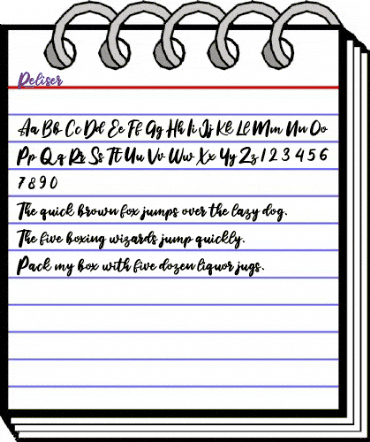 Deliser
Aa Bb Cc Dd Ee Ff Gg Hh Ii Jj Kk Ll Mm Nn Oo
Pp Qq Rr Ss Tt Uu Vv Ww Xx Yy Zz 1 2 3 4 5 6
7 8 9 0
The quick brown fox jumps over the lazy dog.
The five boxing wizards jump quickly.
Pack my box with five dozen liquor jugs.